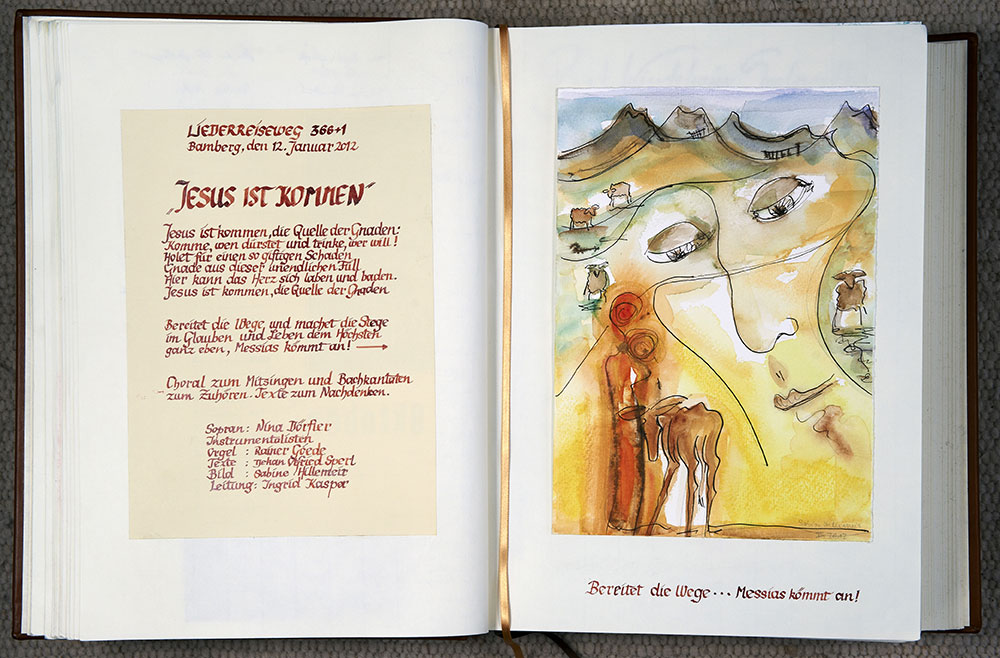 LIEDERREISEWEG 366+1
Bamberg, den 12. Januar 2012
„JESUS IST KOMMEN"
Jesus ist kommen, die Quelle der Gnaden:
Komme, wen dürstet und trinke, wer will!
Holet für einen so giftigen Schaden
Gnade aus dieser unendlichen Füll.
Hier kann das Herz sich laben und baden.
Jesus ist kommen, die Quelle der Gnaden
Bereitet die Wege und machet die Stege
im Glauben und Leben dem Höchsten
ganz eben, Messias kömmt an! →
Choral zum Mitsingen und Bachkantaten
zum Zuhören. Texte zum Nachdenken.
Sopran: Nina Dörfler
Instrumentalisten
Orgel : Rainer Goede
Texte : Otfried Sperl
Bild : Sabine
Leitung: Ingrid Kasper
Bereitet die Wege... Messias kömmt an!